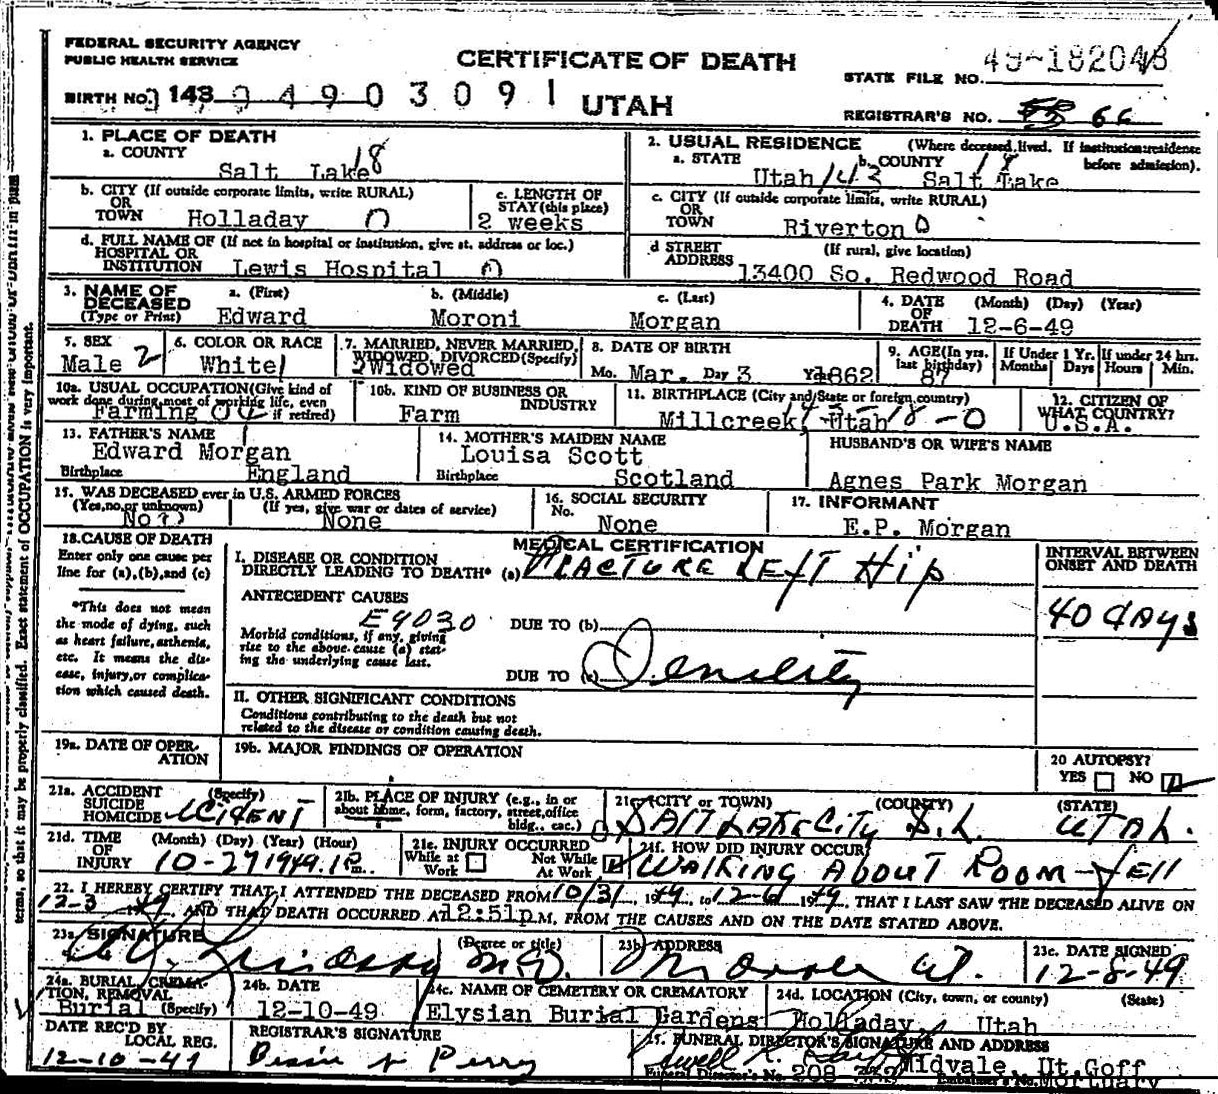 FEDERAL SECURITY AGENCY
PUBLIC HEALTH SERVICE
CERTIFICATE OF DEATH
UTAH
STATE FILE NO. 49-182048
BIRTH NO. 143 0 4 9 0 3 0 9 1
REGISTRAR'S NO. 66
1. PLACE OF DEATH
a. COUNTY
Salt Lake 18
2. USUAL RESIDENCE (Where deceased lived. If institution: residence before admission).
a. STATE b. COUNTY
Utah 143 Salt Lake 18
b. CITY (If outside corporate limits, write RURAL)
OR
TOWN Holladay 0
c. LENGTH OF
STAY (this place)
2 weeks
c. CITY (If outside corporate limits, write RURAL)
OR
TOWN Riverton 0
d. FULL NAME OF (If not in hospital or institution, give st. address or loc.)
HOSPITAL OR
INSTITUTION Lewis Hospital 0
d STREET (If rural, give location)
ADDRESS 13400 So. Redwood Road
3. NAME OF
DECEASED
(Type or Print)
a. (First) b. (Middle) c. (Last)
Edward Moroni Morgan
4. DATE (Month) (Day) (Year)
OF
DEATH 12-6-49
5. SEX
Male 2
6. COLOR OR RACE
White 1
7. MARRIED, NEVER MARRIED,
WIDOWED, DIVORCED (Specify)
Widowed
8. DATE OF BIRTH
Mo. Mar. Day 3 Yr. 1862
9. AGE (In yrs.
last birthday)
87
If Under 1 Yr.
Months Days
If under 24 hrs.
Hours Min.
10a. USUAL OCCUPATION (Give kind of
work done during most of working life, even
if retired)
Farming
10b. KIND OF BUSINESS OR
INDUSTRY
Farm
11. BIRTHPLACE (City and State or foreign country)
Millcreek, Utah 143-18-0
12. CITIZEN OF
WHAT COUNTRY?
U.S.A.
13. FATHER'S NAME
Edward Morgan
Birthplace England
14. MOTHER'S MAIDEN NAME
Louisa Scott
Birthplace Scotland
HUSBAND'S OR WIFE'S NAME
Agnes Park Morgan
15. WAS DECEASED ever in U.S. ARMED FORCES
(Yes, no, or unknown) (If yes, give war or dates of service)
No None
16. SOCIAL SECURITY
No.
None
17. INFORMANT
E.P. Morgan
18. CAUSE OF DEATH
Enter only one cause per
line for (a), (b), and (c)
*This does not mean
the mode of dying, such
as heart failure, asthenia,
etc. It means the dis-
ease, injury, or complica-
tion which caused death.
MEDICAL CERTIFICATION
I. DISEASE OR CONDITION
DIRECTLY LEADING TO DEATH* (a) Fracture Left Hip
ANTECEDENT CAUSES
E9030
Morbid conditions, if any, giving
rise to the above cause (a) stat-
ing the underlying cause last.
DUE TO (b)
DUE TO (c) Senility
INTERVAL BETWEEN
ONSET AND DEATH
40 days
II. OTHER SIGNIFICANT CONDITIONS
Conditions contributing to the death but not
related to the disease or condition causing death.
19a. DATE OF OPER-
ATION
19b. MAJOR FINDINGS OF OPERATION
20 AUTOPSY?
YES NO
21a. ACCIDENT (Specify)
SUICIDE
HOMICIDE Accident
21b. PLACE OF INJURY (e.g., in or
about home, form, factory, street, office
bldg., etc.)
21c. (CITY or TOWN) (COUNTY) (STATE)
Salt Lake City S.L. Utah.
21d. TIME (Month) (Day) (Year) (Hour)
OF
INJURY 10-27 1949 1 P.m.
21e. INJURY OCCURRED
While at
Work
Not While
At Work
21f. HOW DID INJURY OCCUR
Walking About Room-fell
22. I HEREBY CERTIFY THAT I ATTENDED THE DECEASED FROM 10/31, 1949, to 12-6, 1949, THAT I LAST SAW THE DECEASED ALIVE ON
12-3 49, AND THAT DEATH OCCURRED AT 12:51p M. FROM THE CAUSES AND ON THE DATE STATED ABOVE.
23a. SIGNATURE (Degree or title)
Lindsay M.D.
23b. ADDRESS
23c. DATE SIGNED
12-8-49
24a. BURIAL, CREMA-
TION, REMOVAL
(Specify)
Burial
24b. DATE
12-10-49
24c. NAME OF CEMETERY OR CREMATORY
Elysian Burial Gardens
24d. LOCATION (City, town, or county) (State)
Holladay, Utah
DATE REC'D BY
LOCAL REG.
12-10-49
REGISTRAR'S SIGNATURE
Perry
25. FUNERAL DIRECTOR'S SIGNATURE AND ADDRESS
Midvale, Ut. Goff
Mortuary
Funeral Director's No. 208
Embalmer's No.
terms, so that it may be properly classified. Exact statement of OCCUPATION is very important.